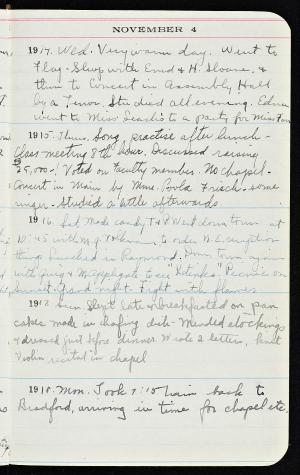 NOVEMBER 4
1914. Wed. Very warm day. Went to
Flag-Shop with Enid & H. Sloane, &
then to Concert in Assembly Hall
by a Tenor. Studied all evening. Edna
went to Miss to a party for Miss
1915. Thurs. Song practise after lunch -
Class meeting 8th hour. Discussed raising
25,000-! Voted on Faculty member. No Chapel.
Concert in Main by Mme. Povla Frisch - some
singer. Studied a little afterwards
1916. Sat. Made candy. T & I went down town at
10:45 with to order
thing. Lunched in Raymond. Down town again
with to see Picnic on
Sunset. Grand night. Fight with flames
191 Sun. Slept late & breakfasted on pan
cakes made in chafing dish. Mended stockings
& dressed just before dinner. Wrote 2 letters, heard
Violin recital in chapel
191 Mon. Took 7:15 train back to
Bradford, arriving in time for chapel etc.